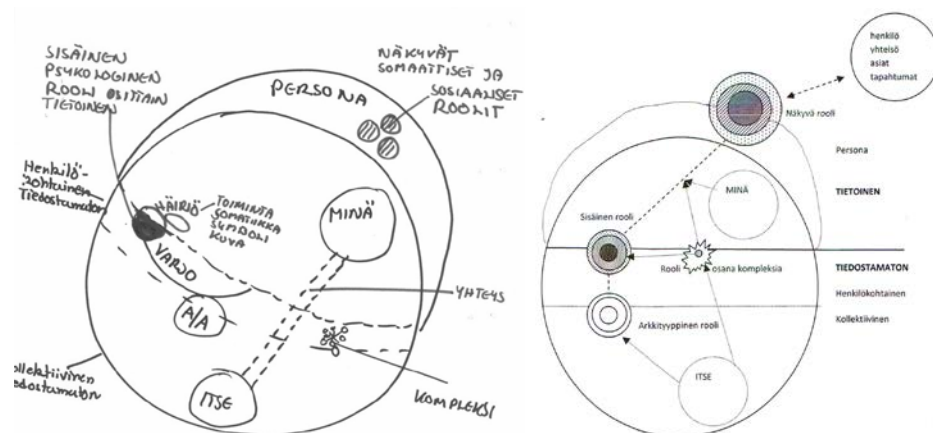 SISÄINEN
PSYKOLOGINEN
ROOLI OSITTAIN
TIETOINEN
PERSONA
NÄKYVÄT
SOMAATTISET JA
SOSIAALISET
ROOLIT
Henkilö-
kohtainen
Tiedostamaton
HÄIRIÖ
TOIMINTA
SOMATIIKKA
SYMBOLI
KUVA
VARJO
MINÄ
A/A
YHTEYS
ollektiivinen
iedostamaton
ITSE
KOMPLEKSI
henkilö
yhteisö
asiat
tapahtumat
Näkyvä rooli
Persona
TIETOINEN
MINÄ
Sisäinen rooli
Rooli osana kompleksia
TIEDOSTAMATON
Henkilökohtainen
Kollektiivinen
Arkkityyppinen rooli
ITSE